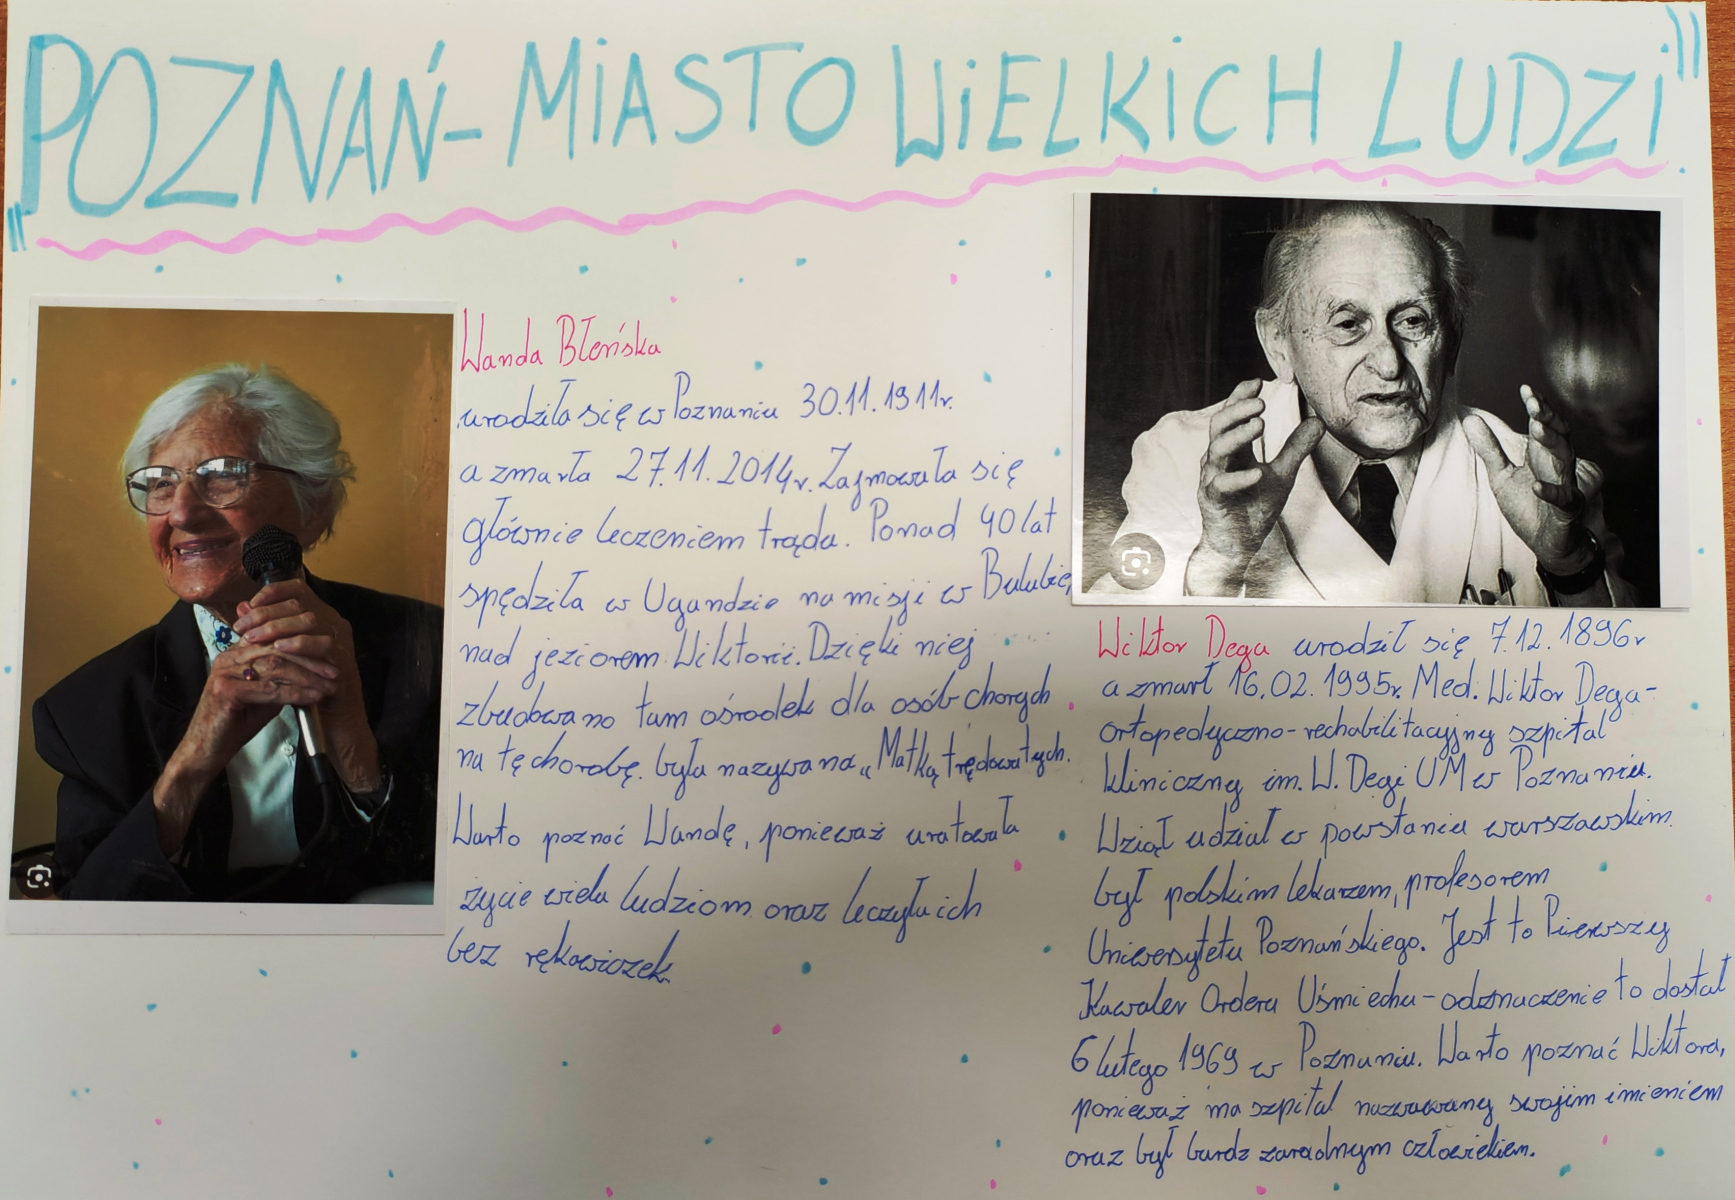 „POZNAŃ - MIASTO WIELKICH LUDZI"
Wanda Błeńska
urodziła się w Poznaniu 30.11.1911r.
a zmarła 27.11.2014r. Zajmowała się
głównie leczeniem trądu. Ponad 40 lat
spędziła w Ugandzie na misji w Bulubie,
nad jeziorem Wiktorii. Dzięki niej
zbudowano tam ośrodek dla osób chorych
na tę chorobę. była nazywana „Matką trędowatych.
Warto poznać Wandę, ponieważ uratowała
życie wielu ludziom oraz leczyła ich
bez rękawiczek.
Wiktor Dega urodził się 7.12.1896r
a zmarł 16.02.1995r. Med. Wiktor Dega-
ortopedyczno-rechabilitacyjny szpital
kliniczny im. W. Degi UM w Poznaniu.
Wziął udział w powstaniu warszawskim.
był polskim lekarzem, profesorem
Uniwersytetu Poznańskiego. Jest to Pierwszy
Kawaler Orderu Uśmiechu - odznaczenie to dostał
6 lutego 1969 w Poznaniu. Warto poznać Wiktora,
ponieważ ma szpital nazwany swojim imieniem
oraz był bardz zaradnym człowiekiem.